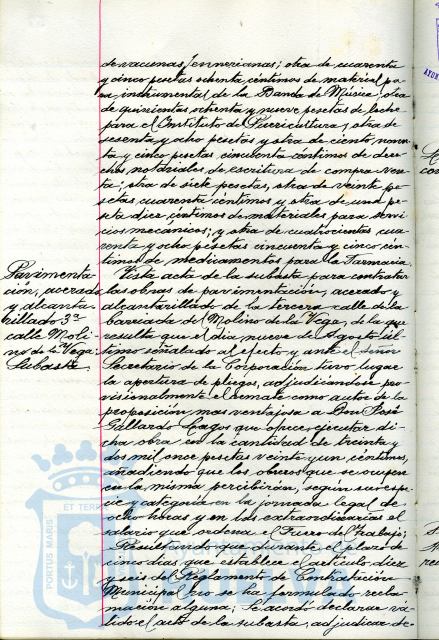 de vacunas Jennerianas; otra de cuarenta
y cinco pesetas ochenta céntimos de material pa-
ra instrumental de la Banda de Música, otra
de quinientas ochenta y nueve pesetas de leche
para el Instituto de Puericultura, otra de
sesenta y ocho pesetas y otra de ciento noven-
ta y cinco pesetas cincuenta céntimos de dere-
chos notariales de escritura de compra-ven-
ta; otra de siete pesetas, otra de veinte pe-
setas cuarenta céntimos y otra de una pe-
seta diez céntimos de materiales para servi-
cios mecánicos; y otra de cuatrocientas cua-
renta y ocho pesetas cincuenta y cinco cén-
timos de medicamentos para la Farmacia.
Pavimenta-
ción, acerado
y alcanta-
rillado 3ª
calle Moli-
no de la Vega.
Subasta.
Vista acta de la subasta para contratar
las obras de pavimentación, acerado y
alcantarillado de la tercera calle de la
barriada del Molino de la Vega, de la que
resulta que el día nueve de Agosto úl-
timo señalado al efecto y ante el señor
Secretario de la Corporación tuvo lugar
la apertura de pliegos, adjudicándose pro-
visionalmente el remate como autor de la
proposición mas ventajosa a Don José
Gallardo Lagos que ofrece ejecutar di-
cha obra en la cantidad de treinta y
dos mil once pesetas veinte y un céntimos,
añadiendo que los obreros que se ocupen
en la misma percibirán, según su espe-
cie y categoría en la jornada legal de
ocho horas y en las extraordinarias el
salario que ordena el Fuero del Trabajo;
Resultando que durante el plazo de
cinco días que establece el artículo diez
y seis del Reglamento de Contratación
Municipal no se ha formulado recla-
mación alguna; Se acordo declarar vá-
lido el acto de la subasta, adjudicar de-
PORTUS MARIS
ET TERR